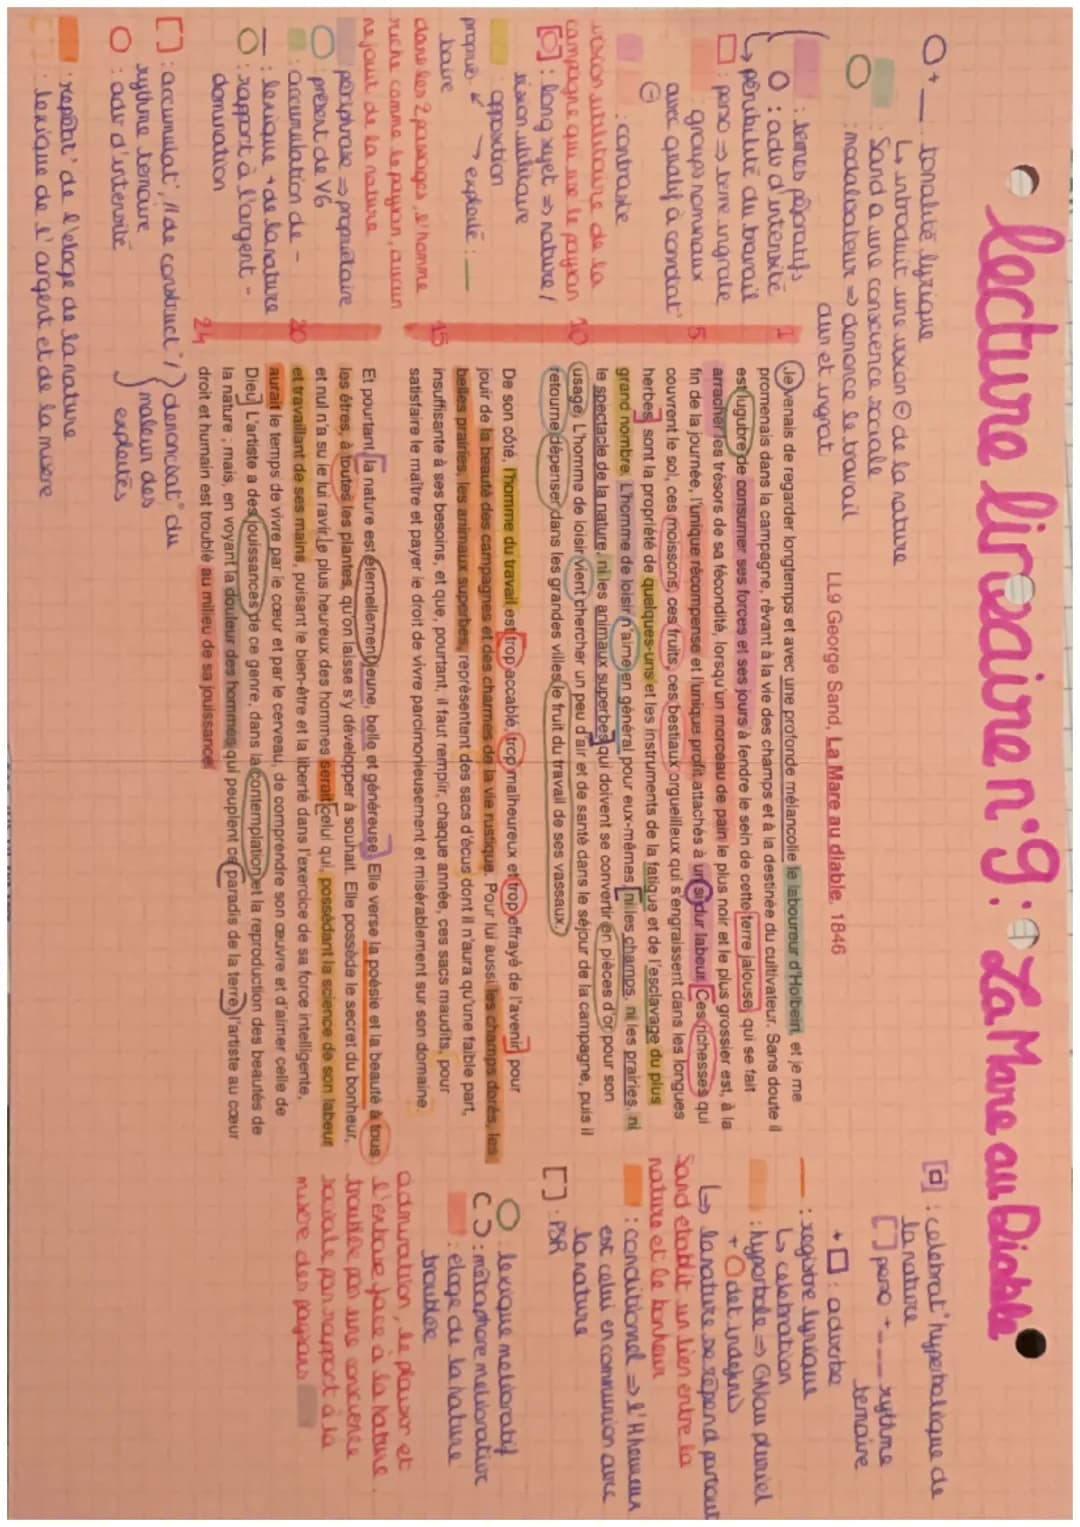 lecture linéaire n°9: La Mare au Diable
O + __ tonalité lyrique
↳ introduit une vision ⊖ de la nature
: Sand a une conscience sociale
O : modalisateur ⇒ dénonce le travail
dur et ingrat
: termes péjoratifs
O : adv d'intensité
↳ pénibilité du travail
□ : perso ⇒ terre ingrate
: groupes nominaux
avec qualif à connotat°
⊖
: contraste
vision utilitaire de la
campagne qui use le paysan
[O] : long sujet ⇒ nature /
vision utilitaire
: opposition
proprié- ↙ ↘ exploité : __
taire
dans les 2 passages, l'homme
riche comme le paysan, aucun
ne jouit de la nature
périphrase ⇒ propriétaire
O présent de VG
: accumulation de -
__ : lexique + de la nature
O : rapport à l'argent -
domination
[] : accumulat°, // de construct° / dénonciat° du
rythme ternaire
malheur des
O : adv d'intensité
exploités
: répétit° de l'éloge de la nature
: lexique de l'argent et de la misère
LL9 George Sand, La Mare au diable, 1846
1 Je venais de regarder longtemps et avec une profonde mélancolie le laboureur d'Holbein, et je me
promenais dans la campagne, rêvant à la vie des champs et à la destinée du cultivateur. Sans doute il
est lugubre de consumer ses forces et ses jours à fendre le sein de cette terre jalouse, qui se fait
arracher les trésors de sa fécondité, lorsqu'un morceau de pain le plus noir et le plus grossier est, à la
5 fin de la journée, l'unique récompense et l'unique profit attachés à un si dur labeur. Ces richesses qui
couvrent le sol, ces moissons, ces fruits, ces bestiaux orgueilleux qui s'engraissent dans les longues
herbes, sont la propriété de quelques-uns et les instruments de la fatigue et de l'esclavage du plus
grand nombre. L'homme de loisir n'aime en général pour eux-mêmes, ni les champs, ni les prairies, ni
le spectacle de la nature, ni les animaux superbes qui doivent se convertir en pièces d'or pour son
10 usage. L'homme de loisir vient chercher un peu d'air et de santé dans le séjour de la campagne, puis il
retourne dépenser dans les grandes villes le fruit du travail de ses vassaux.
De son côté, l'homme du travail est trop accablé, trop malheureux et trop effrayé de l'avenir, pour
jouir de la beauté des campagnes et des charmes de la vie rustique. Pour lui aussi les champs dorés, les
belles prairies, les animaux superbes, représentent des sacs d'écus dont il n'aura qu'une faible part,
15 insuffisante à ses besoins, et que, pourtant, il faut remplir, chaque année, ces sacs maudits, pour
satisfaire le maître et payer le droit de vivre parcimonieusement et misérablement sur son domaine.
Et pourtant, la nature est éternellement jeune, belle et généreuse. Elle verse la poésie et la beauté à tous
les êtres, à toutes les plantes, qu'on laisse s'y développer à souhait. Elle possède le secret du bonheur,
et nul n'a su le lui ravir. Le plus heureux des hommes serait celui qui, possédant la science de son labeur
20 et travaillant de ses mains, puisant le bien-être et la liberté dans l'exercice de sa force intelligente,
aurait le temps de vivre par le cœur et par le cerveau, de comprendre son œuvre et d'aimer celle de
Dieu. L'artiste a des jouissances de ce genre, dans la contemplation et la reproduction des beautés de
la nature ; mais, en voyant la douleur des hommes qui peuplent ce paradis de la terre, l'artiste au cœur
24 droit et humain est troublé au milieu de sa jouissance.
[□] : célébrat° hyperbolique de
la nature
[] perso + __ rythme
ternaire
+ □ : adverbe
__ : registre lyrique
↳ célébration
: hyperbole ⇒ GN au pluriel
+ O det indéfinis
↳ la nature se répend partout
Sand établit un lien entre la
nature et le bonheur
: conditionnel ⇒ l'H heureux
est celui en communion avec
la nature
[] : PSR
O : lexique mélioratif
( ) : métaphore méliorative
: éloge de la nature
troublée
admiration, le plaisir et
l'extase face à la nature
troublée par une conscience
sociale par rapport à la
misère des paysans